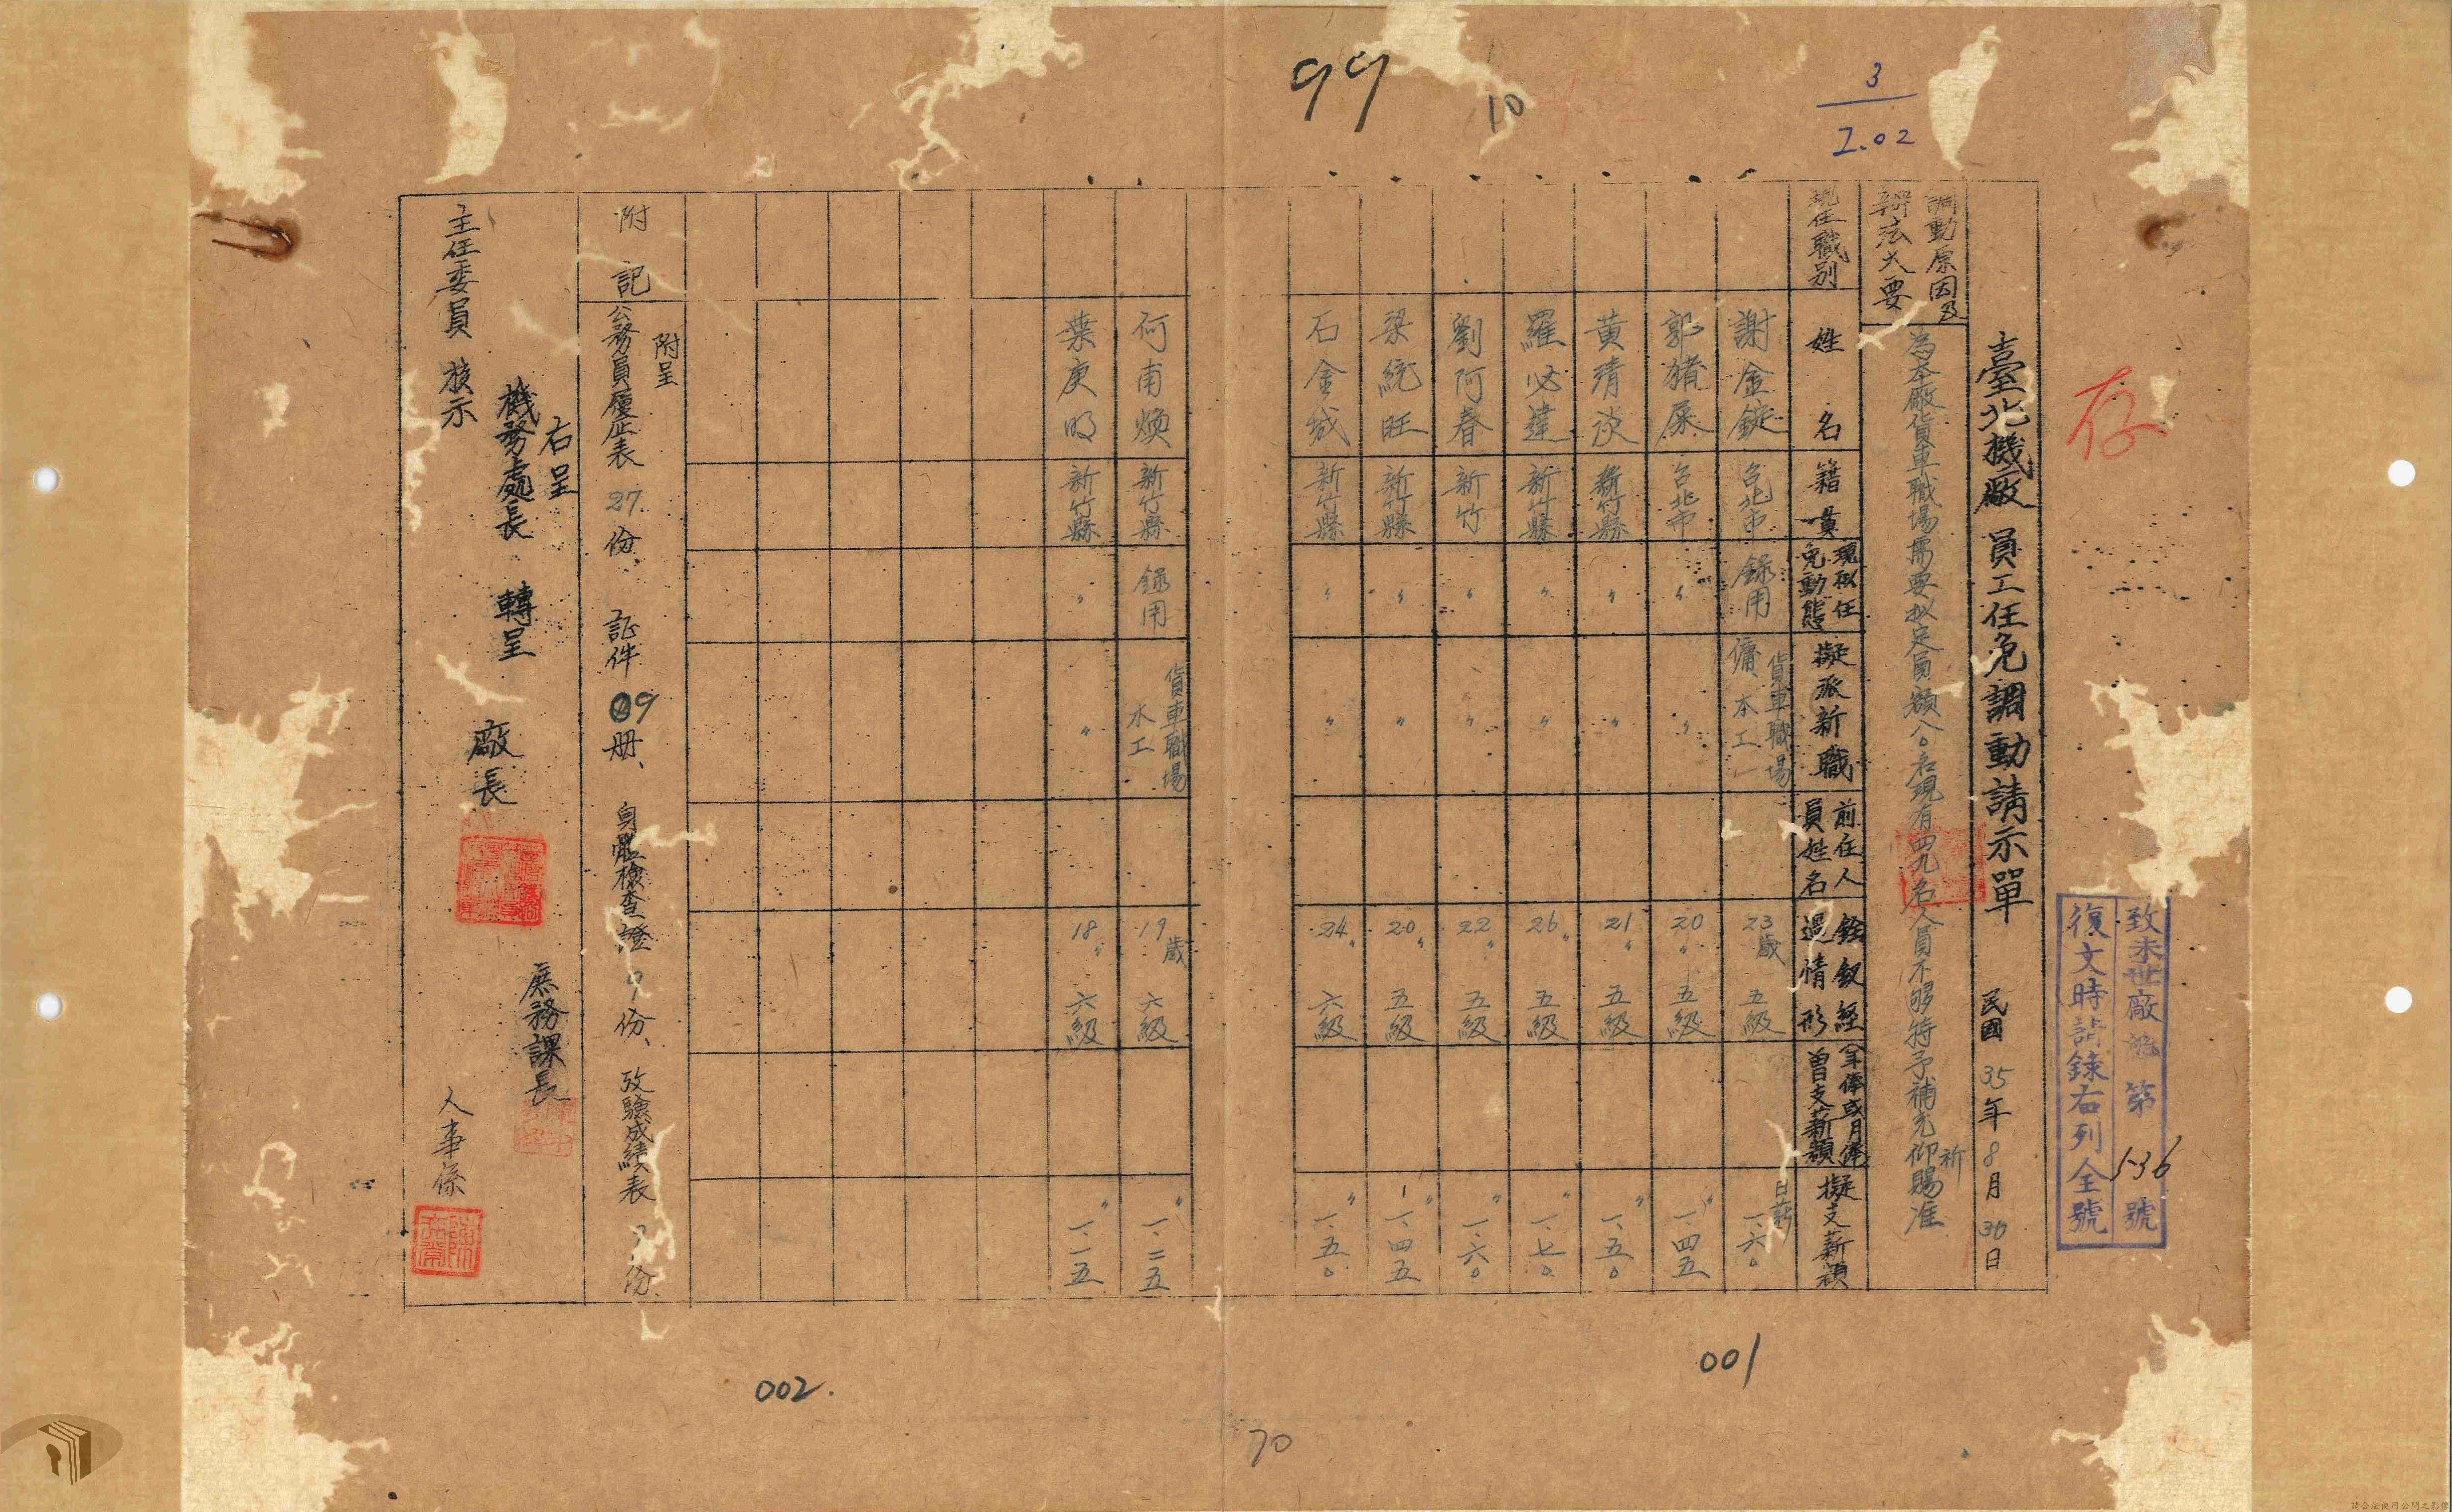 99
10
3
2.02
存
致未世廠 第 536 號
復文時請錄右列全號
臺北機廠員工任免調動請示單 民國35年8月30日
調動原因及
辦法大要
為本廠貨車職場需要拟定員額八〇名現有四九名人員不够特予補充仰祈賜准
現任職別
姓名
籍貫
現拟任
免動態
擬派新職
前任人
員姓名
銓敘経
過情形
年俸或月俸
曾支薪額
擬支薪額
謝金錠 台北市 錄用 貨車職場 傭 木工 23歲 五級 日薪 一、六〇
郭豬屎 台北市 〃 〃 20〃 五級 〃 一、四五
黄清淡 新竹縣 〃 〃 21〃 五級 〃 一、五〇
羅必達 新竹縣 〃 〃 26〃 五級 〃 一、七〇
劉阿春 新竹 〃 〃 22〃 五級 〃 一、六〇
梁統旺 新竹縣 〃 〃 20〃 五級 〃 一、四五
石金城 新竹縣 〃 〃 24〃 六級 〃 一、五〇
何甫煥 新竹縣 錄用 貨車職場 木工 19歲 六級 〃 一、二五
葉庚明 新竹縣 〃 〃 18〃 六級 〃 一、一五
附記
附呈
公務員履歴表 27份、証件 09册、身體檢查證 9份、攷驗成績表 9份、
右呈
機務處長 轉呈
主任委員 核示
廠長
庶務課長
人事係
001
002.
70
請合法使用公開之影像